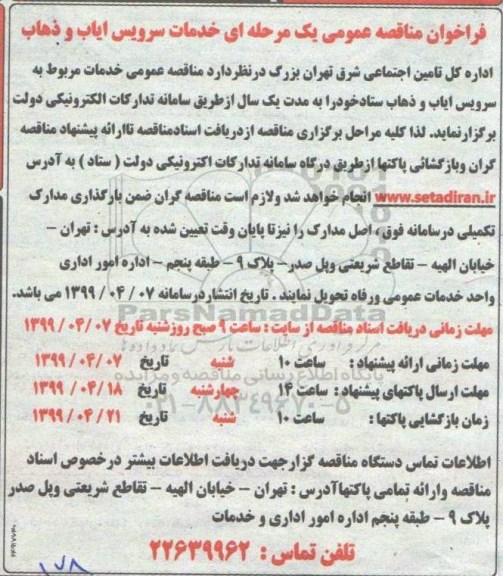 فراخوان مناقصه عمومی یک مرحله ای خدمات سرویس ایاب و ذهاب
اداره کل تامین اجتماعی شرق تهران بزرگ درنظردارد مناقصه عمومی خدمات مربوط به
سرویس ایاب و ذهاب ستادخودرا به مدت یک سال ازطریق سامانه تدارکات الکترونیکی دولت
برگزارنماید. لذا کلیه مراحل برگزاری مناقصه ازدریافت اسنادمناقصه تاارائه پیشنهاد مناقصه
گران وبازگشائی پاکتها ازطریق درگاه سامانه تدارکات اکترونیکی دولت ( ستاد ) به آدرس
www.setadiran.ir انجام خواهد شد ولازم است مناقصه گران ضمن بارگذاری مدارک
تکمیلی درسامانه فوق ، اصل مدارک را نیزتا پایان وقت تعیین شده به آدرس : تهران –
خیابان الهیه – تقاطع شریعتی وپل صدر– پلاک ۹ – طبقه پنجم – اداره امور اداری
واحد خدمات عمومی ورفاه تحویل نمایند . تاریخ انتشاردرسامانه ۰۷ / ۰۴ / ۱۳۹۹ می باشد.
مهلت زمانی دریافت اسناد مناقصه از سایت : ساعت ۹ صبح روزشنبه تاریخ ۰۷ / ۰۴ / ۱۳۹۹
مهلت زمانی ارائه پیشنهاد : ساعت ۱۰ شنبه تاریخ ۰۷ / ۰۴ / ۱۳۹۹
مهلت ارسال پاکتهای پیشنهاد : ساعت ۱۴ چهارشنبه تاریخ ۱۸ / ۰۴ / ۱۳۹۹
زمان بازگشایی پاکتها : ساعت ۱۰ شنبه تاریخ ۲۱ / ۰۴ / ۱۳۹۹
اطلاعات تماس دستگاه مناقصه گزارجهت دریافت اطلاعات بیشتر درخصوص اسناد
مناقصه وارائه تمامی پاکتهاآدرس : تهران – خیابان الهیه – تقاطع شریعتی وپل صدر
پلاک ۹ – طبقه پنجم اداره امور اداری و خدمات
تلفن تماس : ۲۲۶۳۹۹۶۲
۱۷۸
ParsNamadData
پایگاه اطلاع رسانی مناقصه و مزایده
۰۲۱-۸۸۳۴۹۶۷۰-۵